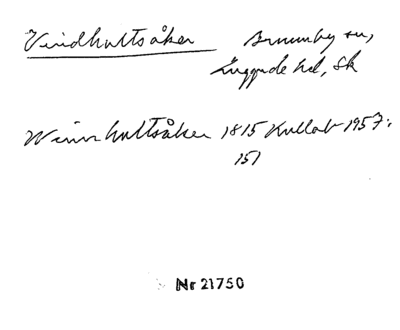 Vindhultsåker Brunnby sn,
Luggude hd, Sk
Winnhultsåker 1815 Kullab 1957:
151
Nr 21750